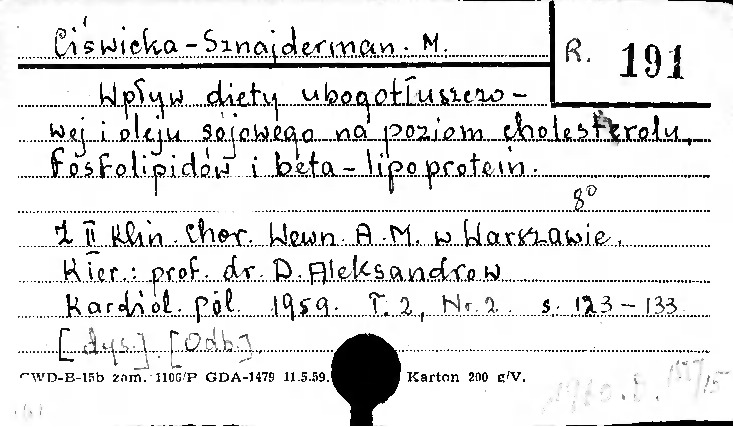 Ciświcka-Sznajderman. M.
R. 191
Wpływ diety ubogotłuszczo-
wej i oleju sojowego na poziom cholesterolu,
fosfolipidów i beta-lipoprotein.
8°
Z II Klin. Chor. Wewn. A.M. w Warszawie.
Kier.: prof. dr. D. Aleksandrow
Kardiol. pol. 1959. T.2, Nr.2. s. 123-133.
[dys.]. [Odb.].
CWD-B-15b zam. 1106/P GDA-1479 11.5.59. Karton 200 g/V.